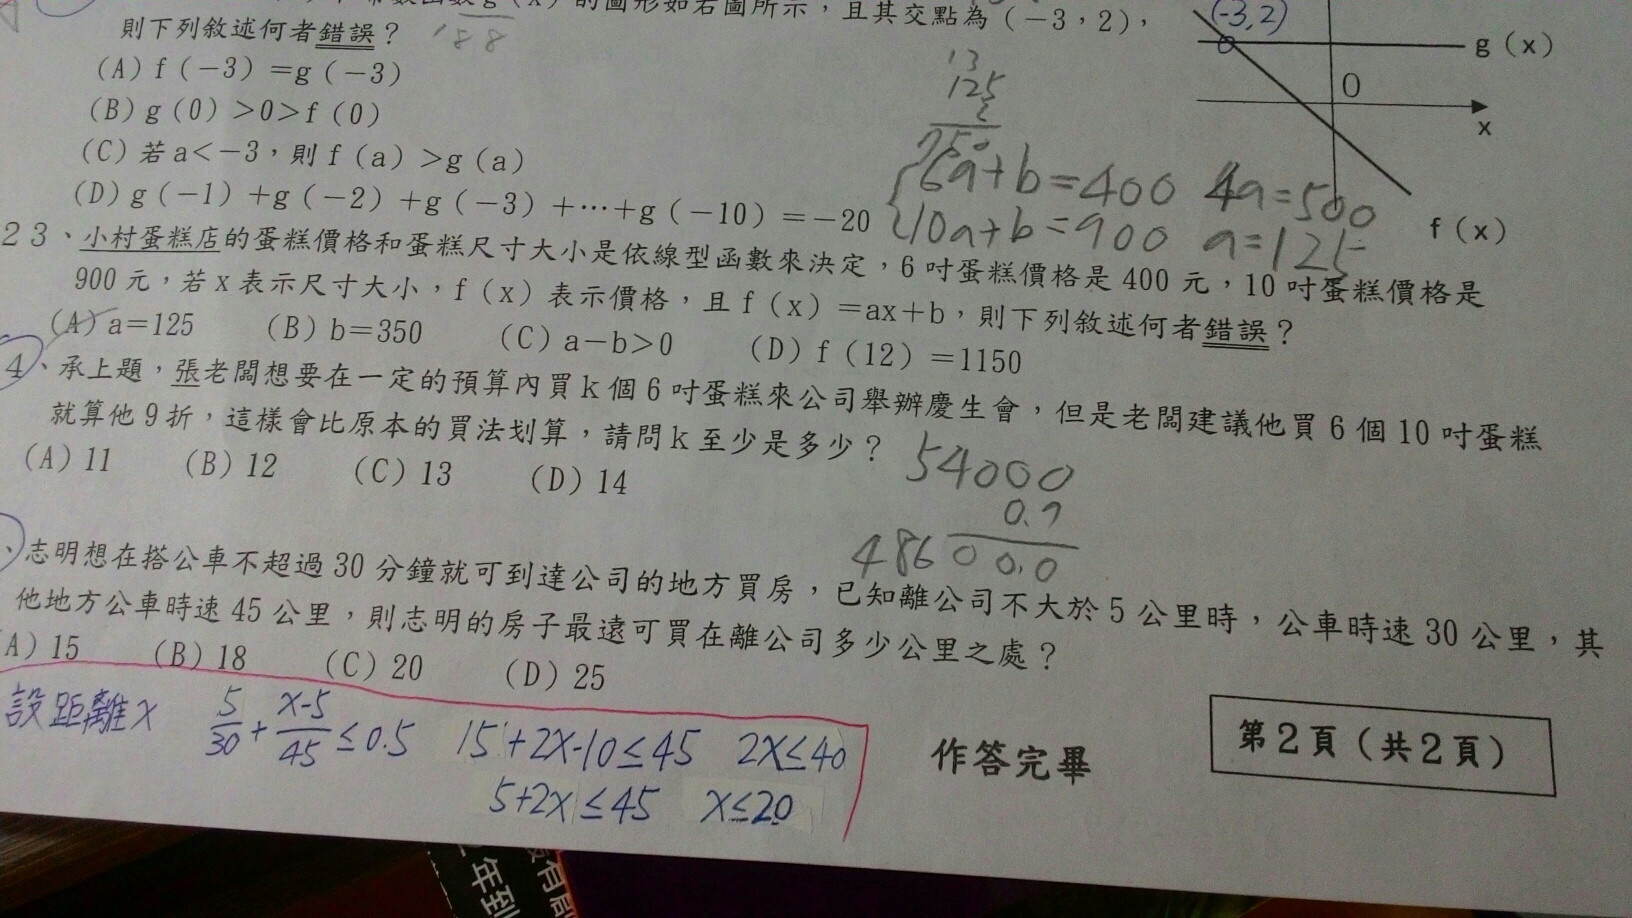 的圖形如右圖所示，且其交點為（－3，2），
則下列敘述何者錯誤？
188
(A) f（－3）＝g（－3）
(B) g（0）＞0＞f（0）
(C) 若a＜－3，則f（a）＞g（a）
(D) g（－1）＋g（－2）＋g（－3）＋…＋g（－10）＝－20
(-3,2)
g（x）
0
x
f（x）
13
125
6
750
6a+b=400 4a=500
10a+b=900 a=125
23、小村蛋糕店的蛋糕價格和蛋糕尺寸大小是依線型函數來決定，6吋蛋糕價格是400元，10吋蛋糕價格是
900元，若x表示尺寸大小，f（x）表示價格，且f（x）＝ax＋b，則下列敘述何者錯誤？
(A) a＝125 (B) b＝350 (C) a－b＞0 (D) f（12）＝1150
4、承上題，張老闆想要在一定的預算內買k個6吋蛋糕來公司舉辦慶生會，但是老闆建議他買6個10吋蛋糕
就算他9折，這樣會比原本的買法划算，請問k至少是多少？
(A) 11 (B) 12 (C) 13 (D) 14
54000
0.9
48600.0
、志明想在搭公車不超過30分鐘就可到達公司的地方買房，已知離公司不大於5公里時，公車時速30公里，其
他地方公車時速45公里，則志明的房子最遠可買在離公司多少公里之處？
A) 15 (B) 18 (C) 20 (D) 25
設距離x 5/30+x-5/45≤0.5 15+2x-10≤45 2x≤40
5+2x≤45 x≤20
作答完畢
第2頁（共2頁）
年到
有